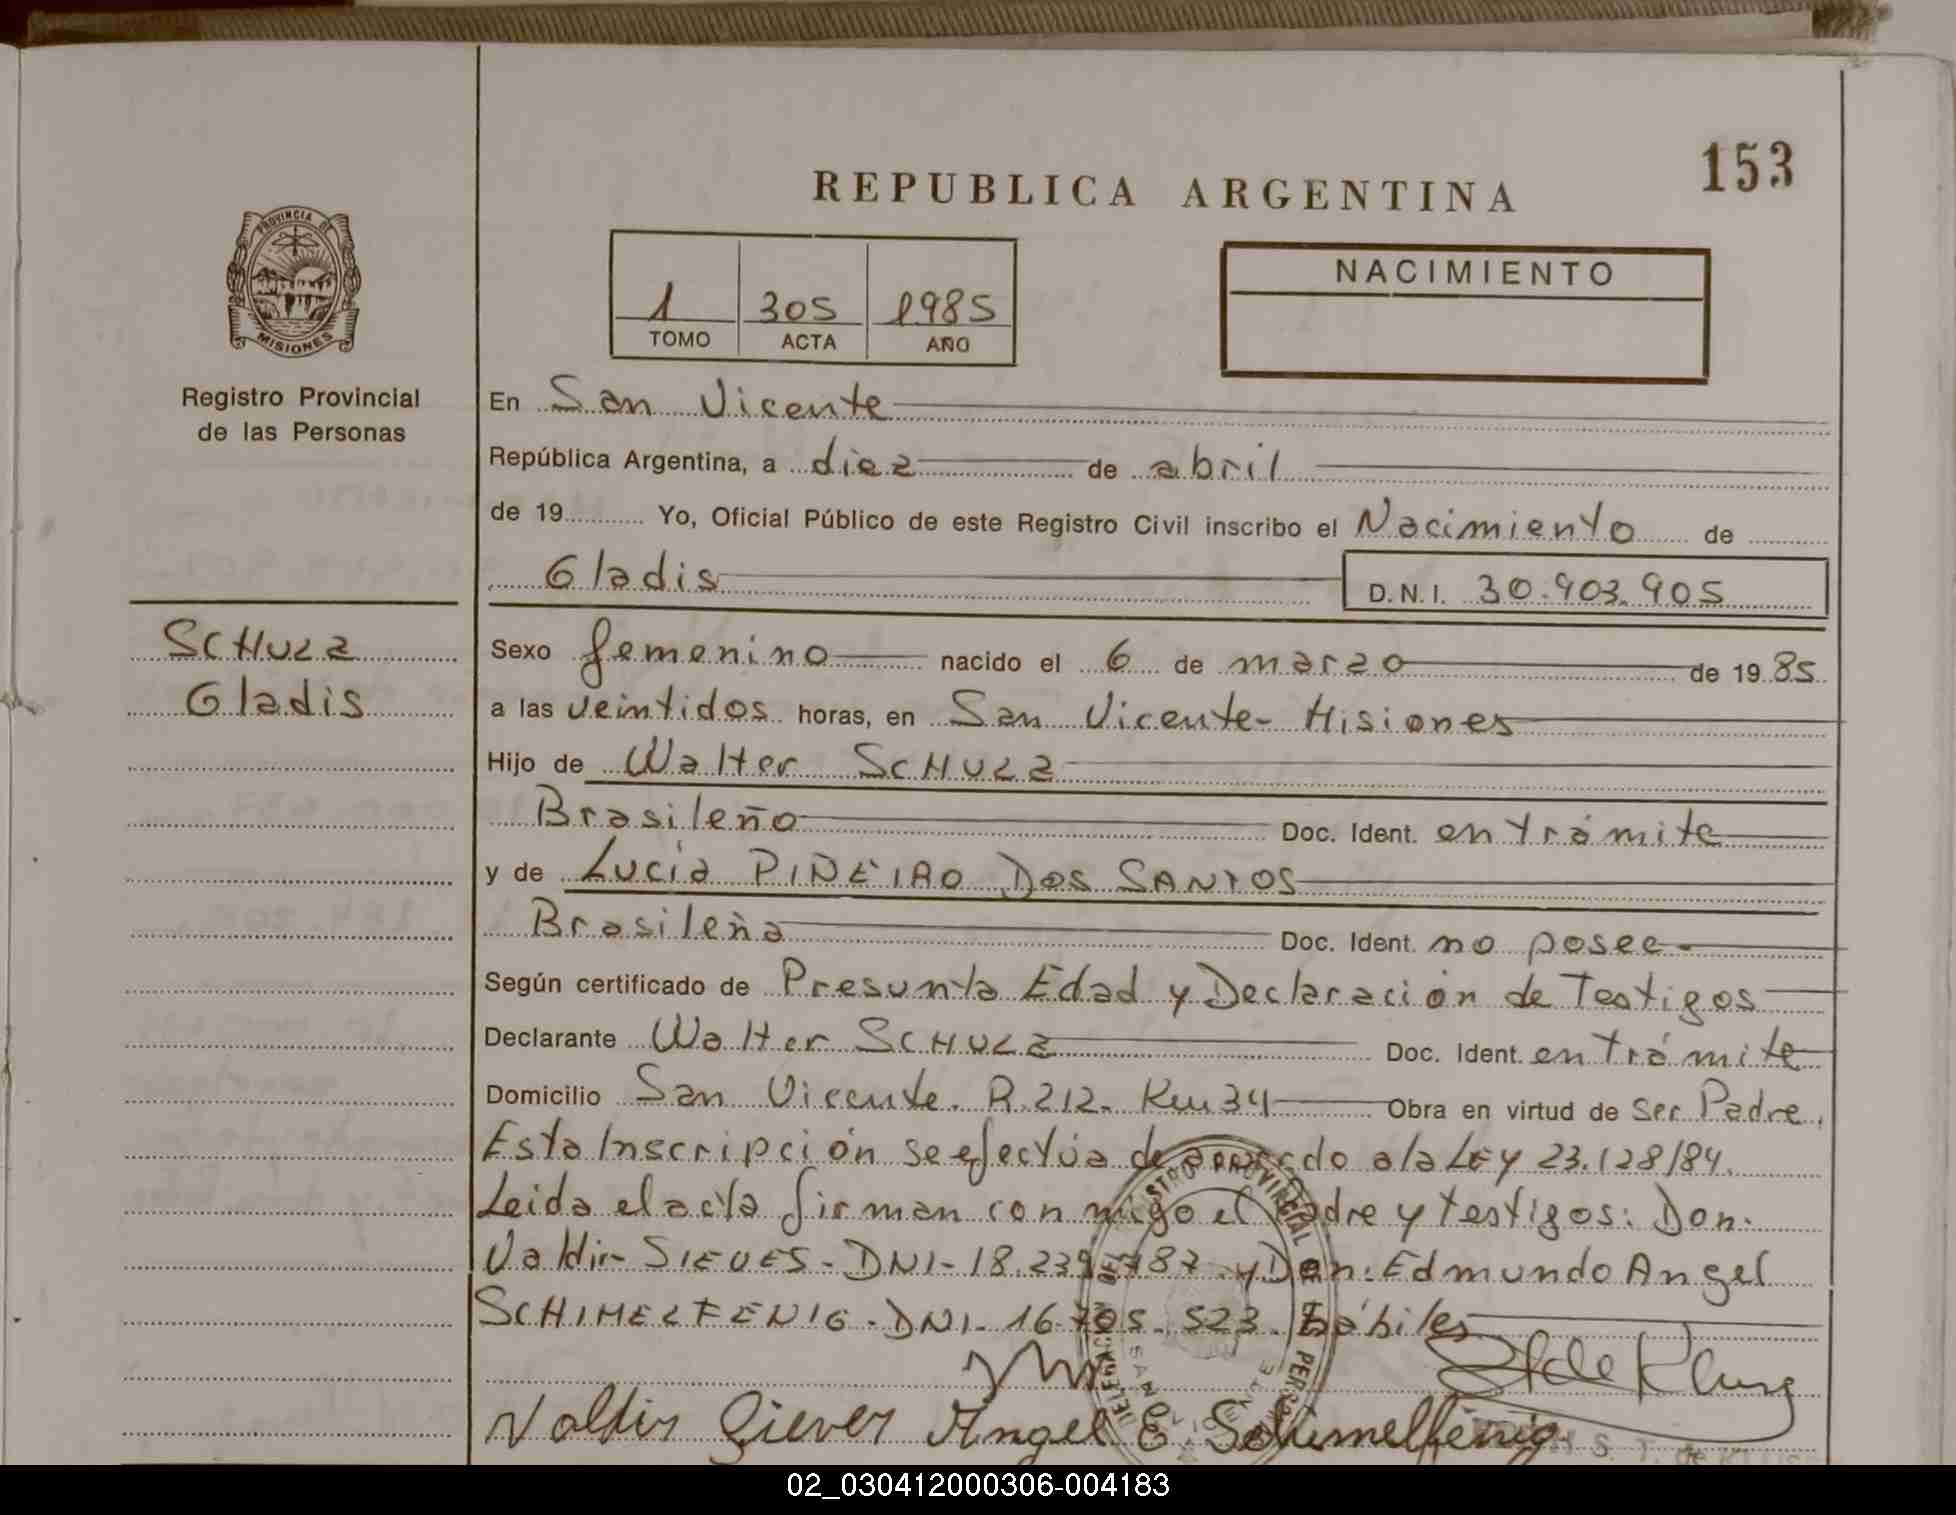 153
REPUBLICA ARGENTINA
PROVINCIA DE
MISIONES
Registro Provincial
de las Personas
1 305 1985
TOMO ACTA AÑO
NACIMIENTO
En San Vicente
República Argentina, a diez de abril
de 19 Yo, Oficial Público de este Registro Civil inscribo el Nacimiento de
Gladis D.N.I. 30.903.905
SCHULZ
Gladis
Sexo femenino nacido el 6 de marzo de 1985
a las veintidos horas, en San Vicente- Misiones
Hijo de Walter SCHULZ
Brasileño Doc. Ident. en trámite
y de Lucía PIÑEIRO DOS SANTOS
Brasileña Doc. Ident. no posee-
Según certificado de Presunta Edad y Declaración de Testigos
Declarante Walter SCHULZ Doc. Ident. en trámite
Domicilio San Vicente. R.212. Km 34 Obra en virtud de ser Padre.
Esta Inscripción se efectúa de acuerdo a la LEY 23.128/84.
Leida el acta firman conmigo el Padre y testigos: Don.
Valdir- SIEVES- DNI- 18.239.787 y Don: Edmundo Angel
SCHIMELFENIG- DNI- 16.705.523. Hábiles
Valdir Siever Angel E. Schimelfenig
02_030412000306-004183